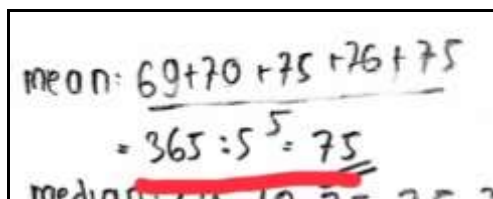 mean: 69+70+75+76+75
5
= 365 : 5 = 75
median: